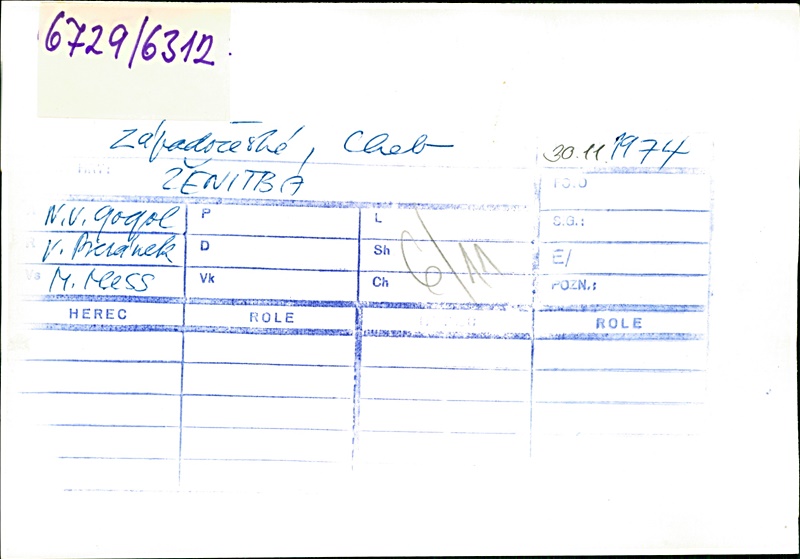 6729/6312
Západočeské, Cheb
30.11.1974
ŽENITBA
N.V. Gogol P L S.G.:
R V. Beránek D Sh E/
Vs M. Mess Vk Ch POZN.:
6/11
HEREC ROLE ROLE